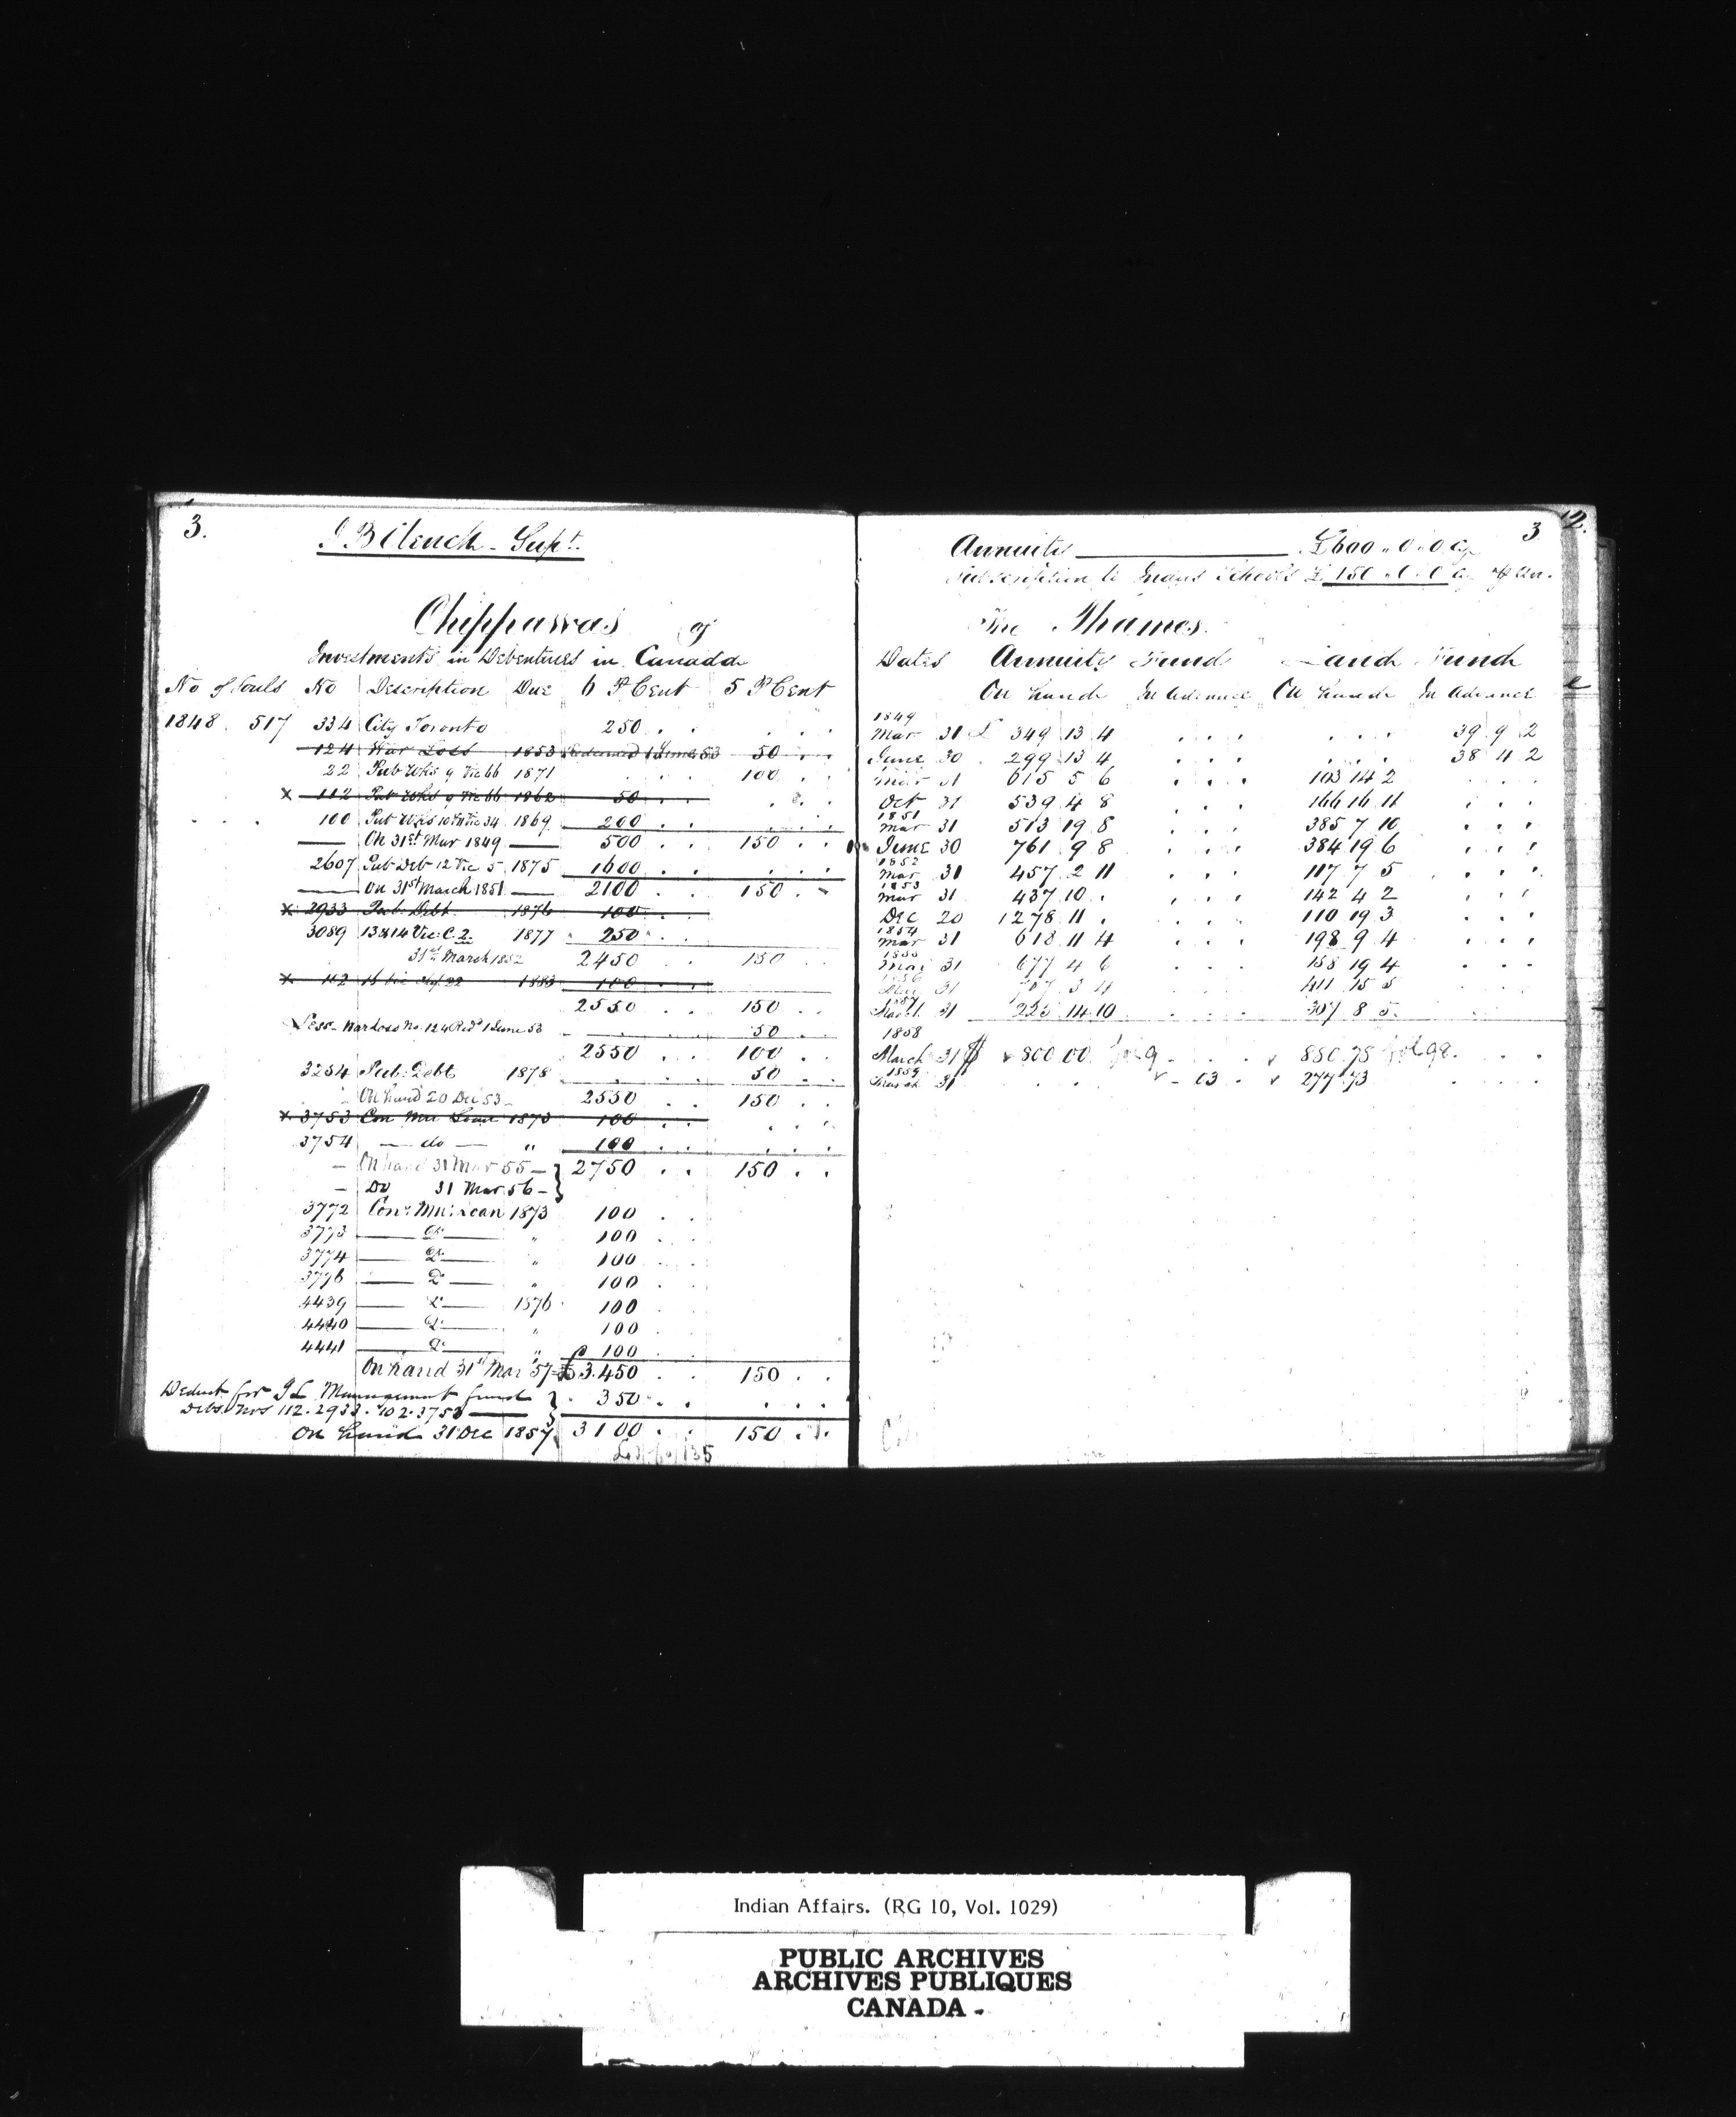 3.
J B Clench - Supt.
Chippawas of
Investments in Debentures in Canada
No of Souls No Description Due 6 P Cent 5 P Cent
1848 . 517 334 City Toronto 250 . .
124 War Loss 1853 Redeemed 1 June 53 50 . .
22 Pub Wks 9 Vic 66 1871 100 . .
x 112 Pub Wks 9 Vic 66 1862 50 . .
100 Pub Wks 10 & 11 Vic 34 1869 200 . .
On 31st Mar 1849 500 . . 150 . .
2607 Pub Deb 12 Vic 5 1875 1600 . .
On 31st March 1851 2100 . . 150 . .
x 2933 Pub. Debt 1876 100 . .
3089 13 & 14 Vic: C. 2. 1877 250 . .
31st March 1852 2450 . . 150 . .
x 102 16 Vic 22 1883 100 . .
2550 . . 150 . .
Less War Loss No. 124 Red 1 June 53 50 . .
2550 . . 100 . .
3254 Pub: Debt 1878 50 . .
On hand 20 Dec 53 2550 . . 150 . .
x 3753 Con Mu Loan 1873 100 . .
3754 — do — " 100 . .
— On hand 31 Mar 55 — } 2750 . . 150 . .
— Do 31 Mar 56 — }
3772 Con. Mu: Loan 1873 100 . .
3773 — Do — " 100 . .
3774 — Do — " 100 . .
3776 — Do — " 100 . .
4439 — Do — 1876 100 . .
4440 — Do — " 100 . .
4441 — Do — " 100 . .
On hand 31st Mar 57 £3.450 150 . .
Deduct for I L Management fund } 350 . .
Debs. Nos 112 . 2933 . 102 . 3753 }
On hand 31 Dec 1857 3100 . . 150 . .
135
3
12.
Annuity £600 . 0 . 0 Cy
Subscription to Indus Schools £ 150 . 0 . 0 Cy
The Thames.
Dates Annuity Fund Land Fund
On hand In Advance On hand In Advance
1849
Mar 31 £ 349 13 4 39 9 2
June 30 299 13 4 38 4 2
Mar 31 615 5 6 103 14 2
Oct 31 539 4 8 166 16 11
1851
Mar 31 513 19 8 385 7 10
June 30 761 9 8 384 19 6
1852
Mar 31 457 2 11 117 7 5
1853
Mar 31 437 10 . 142 4 2
Dec 20 1278 11 . 110 19 3
1854
Mar 31 618 11 4 198 9 4
1855
Mar 31 677 4 6 158 19 4
1856
31 411 15 5
1857
March 31 225 14 10 307 8 5
1858
March 31 $ 800.00 fol 9 850.75 fol 98
1859
March 31 03 277.73
Indian Affairs. (RG 10, Vol. 1029)
PUBLIC ARCHIVES
ARCHIVES PUBLIQUES
CANADA